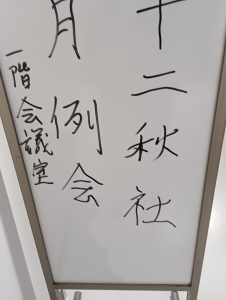 十二秋社
月例会
一階会議室